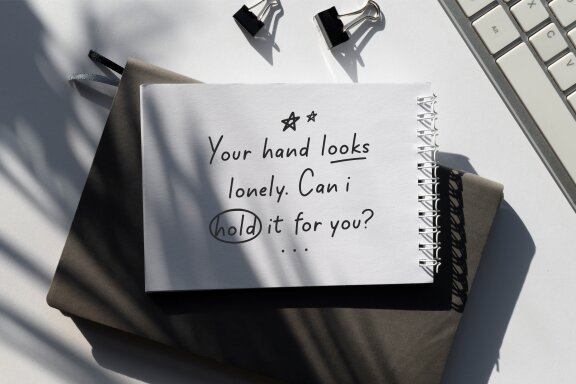 Your hand looks
lonely. Can i
hold it for you?
...